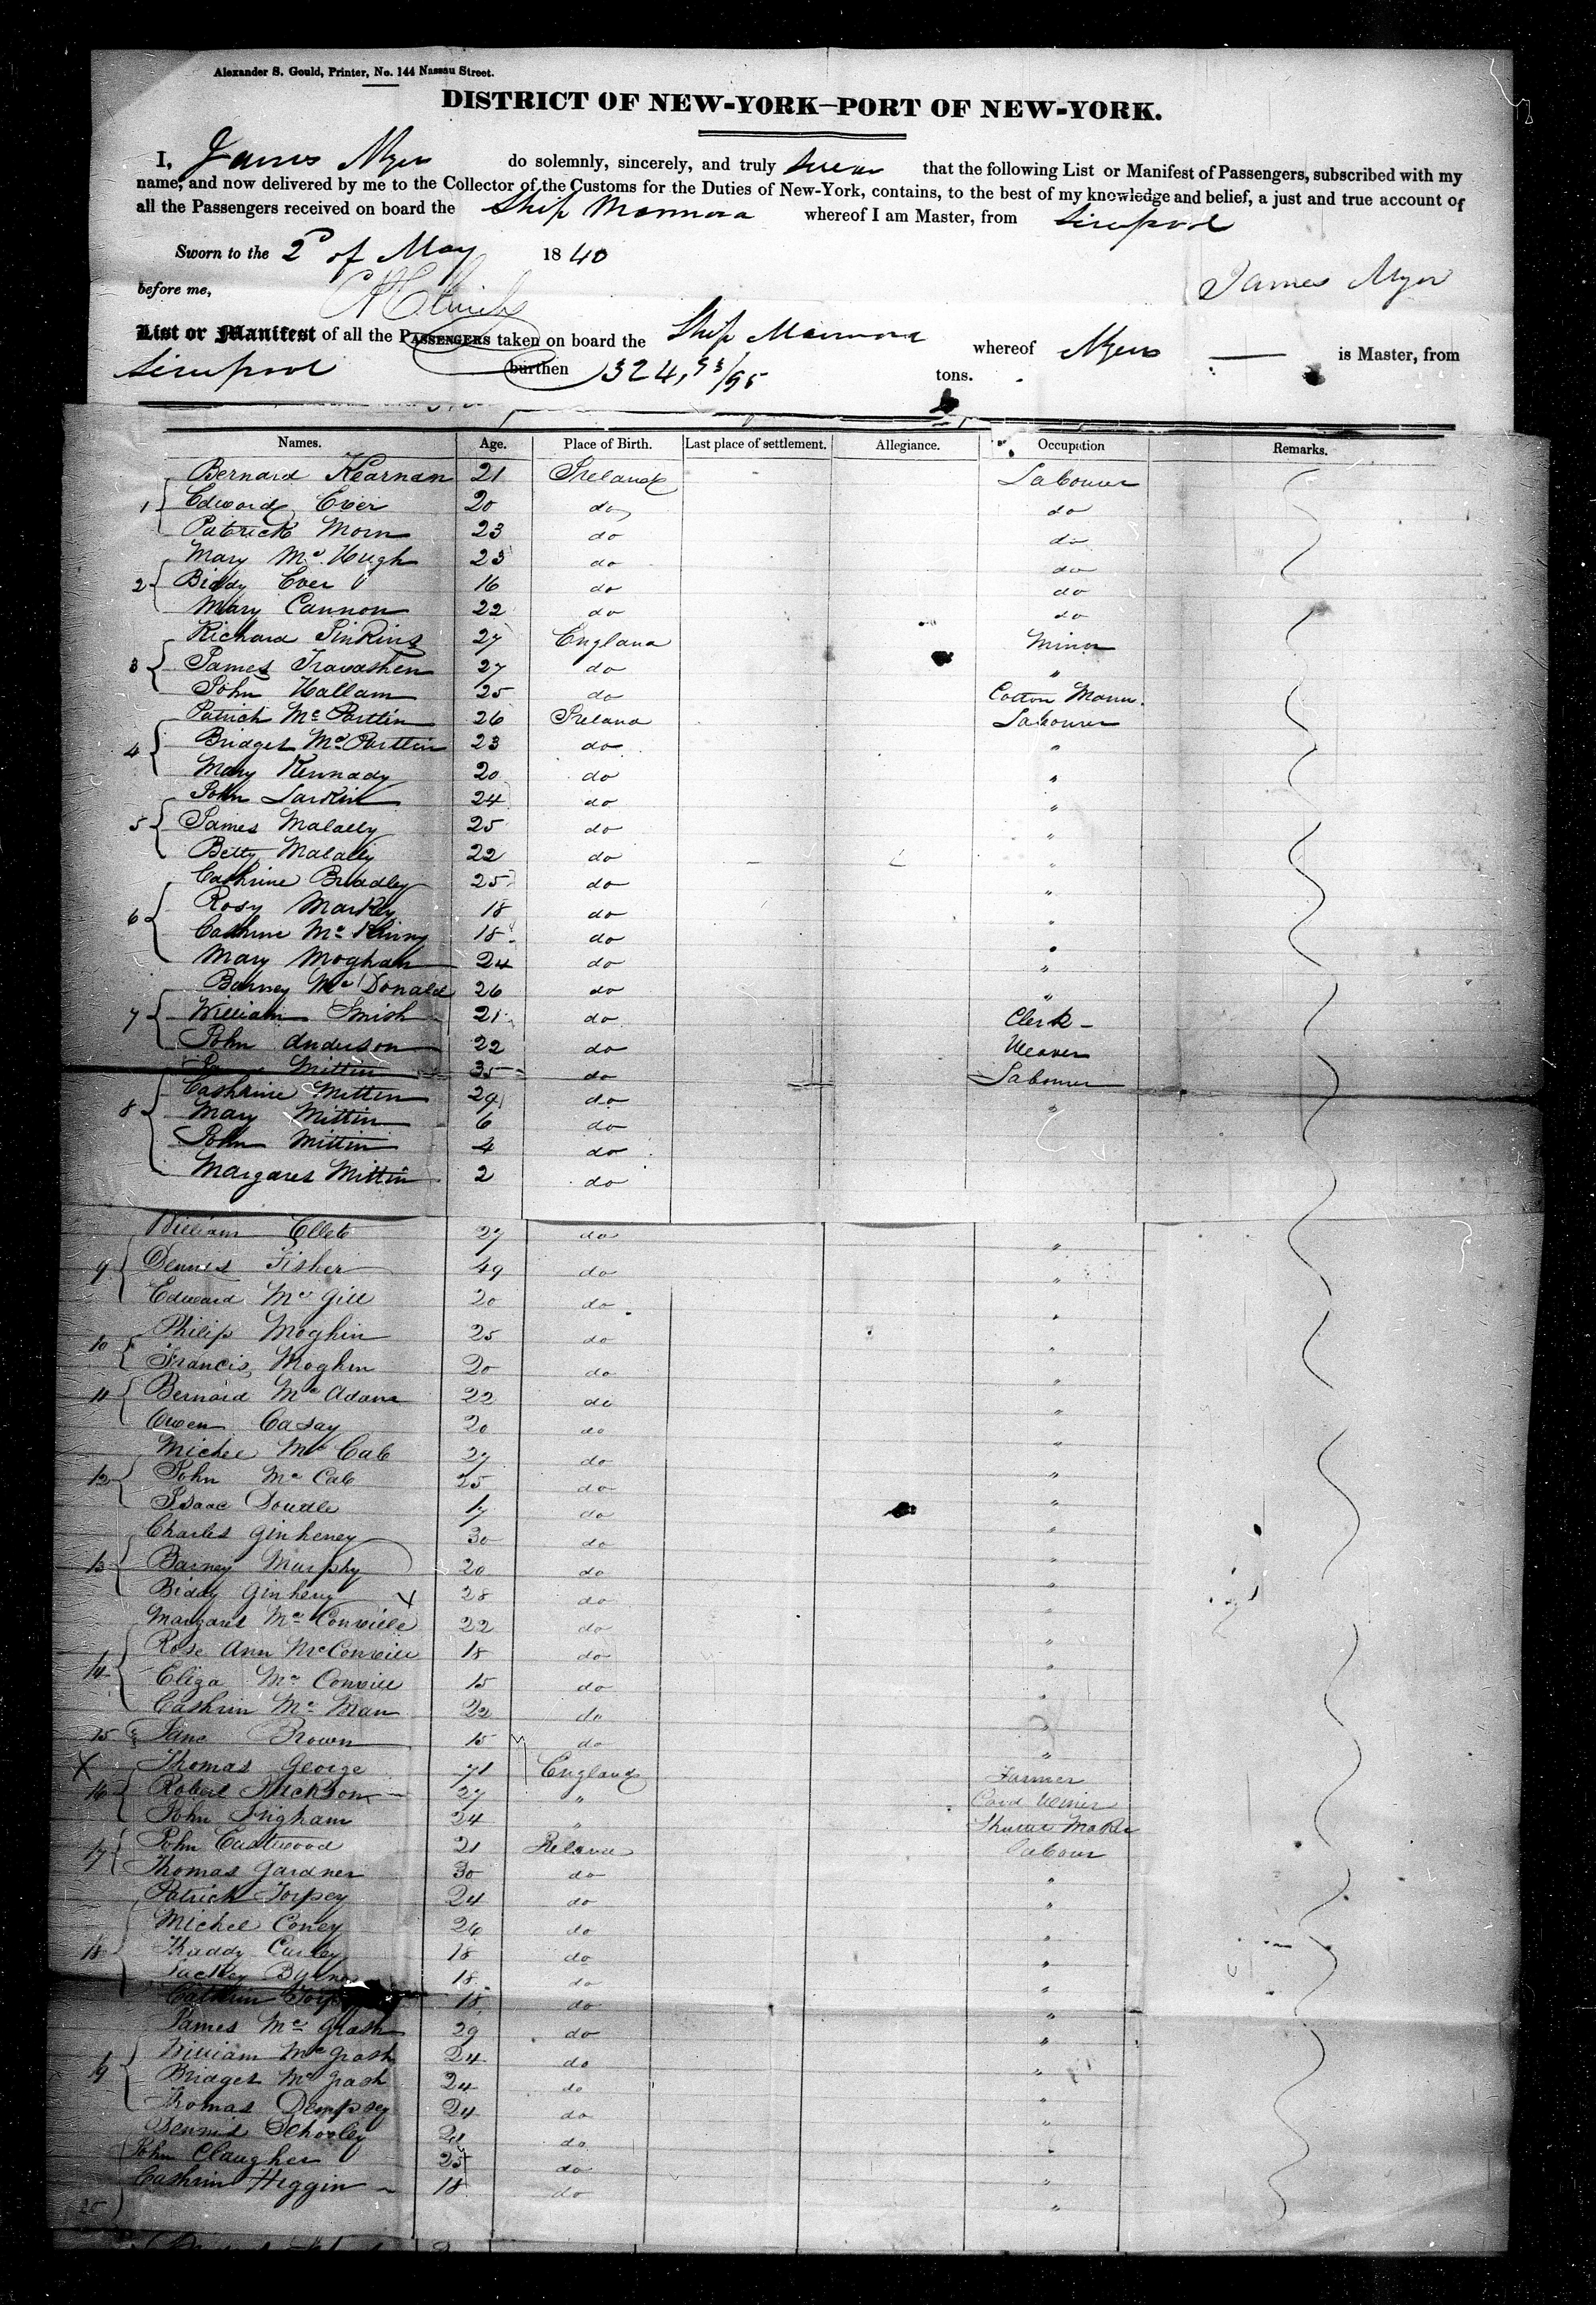 Alexander S. Gould, Printer, No. 144 Nassau Street.
DISTRICT OF NEW-YORK—PORT OF NEW-YORK.
I, James Myers do solemnly, sincerely, and truly swear that the following List or Manifest of Passengers, subscribed with my
name, and now delivered by me to the Collector of the Customs for the Duties of New-York, contains, to the best of my knowledge and belief, a just and true account of
all the Passengers received on board the Ship Marmora whereof I am Master, from Liverpool
Sworn to the 2d of May 1840
James Myers
before me,
List or Manifest of all the PASSENGERS taken on board the Ship Marmora whereof Myers — is Master, from
Liverpool burthen 324, /95 tons.
Names. Age. Place of Birth. Last place of settlement. Allegiance. Occupation Remarks.
Bernard Kearnan 21 Ireland Labourer
1 Edward Ever 20 do do
Patrick Morn 23 do do
Mary Mc Hugh 23 do do
2 Biddy Ever 16 do do
Mary Cannon 22 do do
Richard Jinkins 27 England Minor
3 James Travashen 27 do "
John Hallam 25 do Cotton Manu.
Patrick Mc Partlin 26 Ireland Labourer
4 Bridget Mc Partlin 23 do "
Mary Kennady 20 do "
John Larkin 24 do "
5 James Malally 25 do "
Betty Malally 22 do "
Cathrine Bradley 25 do "
6 Rosy Markey 18 do "
Cathrine Mc 18 do "
Mary Moghan 24 do "
Barney Mc Donald 26 do "
7 William Smith 21 do Clerk
John Anderson 22 do Weaver
Mittin 35 do Labourer
8 Cathrine Mittin 29 do "
Mary Mittin 6 do
John Mittin 4 do
Margaret Mittin 2 do
William Ellet 27 do "
9 Dennis Fisher 49 do "
Edward Mc Gill 20 do "
10 Philip Moghin 25 do "
Francis Moghin 20 do "
11 Bernard Mc Adam 22 do "
Owen Casay 20 do "
Michel Mc Cab 27 do "
12 John Mc Cab 25 do "
Isaac Doudle 17 do "
Charles Ginheney 30 do "
13 Barney Murphy 20 do "
Biddy Ginheny 28 do "
Margaret Mc Conville 22 do "
14 Rose Ann McConvill 18 do "
Eliza Mc Convill 15 do "
Cathrin Mc Man 22 do "
15 Jane Brown 15 do "
X Thomas George 71 England Farmer
16 Robert 27 "
John Ingham 24 "
17 John Eastwood 21 Ireland Labour
Thomas Gardner 30 do "
Patrick Torpey 24 do "
Michel Coney 26 do "
18 Thaddy Curley 18 do "
18 do "
Cathrin 18 do "
James Mc Grath 29 do "
19 William Mc Grath 24 do "
Bridget Mc Grath 24 do "
Thomas Dempsey 24 do "
Dennis 21 do "
John Claugher 25 do "
20 Cathrin Higgin 18 do "